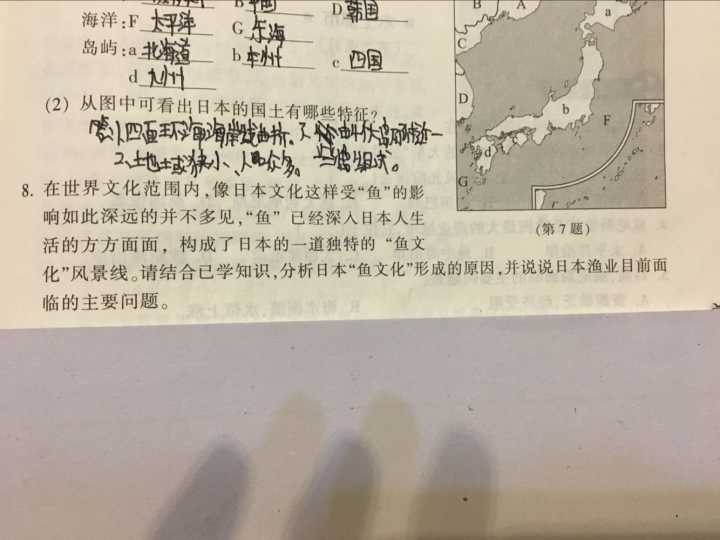 B 中国 D 韩国
海洋:F 太平洋 G 东海
岛屿:a 北海道 b 本州 c 四国
d 九州
(2) 从图中可看出日本的国土有哪些特征?
四面环海海岸线曲折。
2、土地狭小、人口众多。
8. 在世界文化范围内,像日本文化这样受“鱼”的影
响如此深远的并不多见,“鱼” 已经深入日本人生
活的方方面面, 构成了日本的一道独特的 “鱼文
化”风景线。请结合已学知识,分析日本“鱼文化”形成的原因,并说说日本渔业目前面
临的主要问题。
B A a
C
D
b F
d
G
(第 7 题)